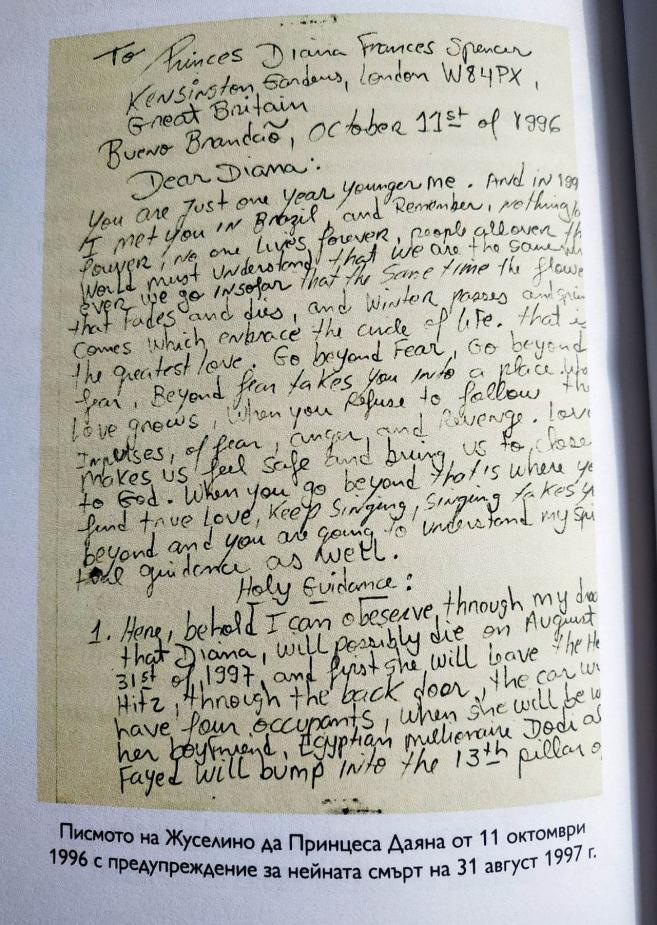 To Princes Diana Frances Spencer
Kensington Gardens, London W84PX,
Great Britain
Bueno Brandão, October 11st of 1996
Dear Diana:
You are just one year younger me. And in 199
I met you in Brazil, and Remember, nothing
fouver; no one lives forever, people all over th
World must understand that we are the same
ever we go insofar that the same time the flowe
that fades and dies, and Winter passes and sprin
comes which embrace the circle of life. that is
the greatest love. Go beyond Fear, Go beyond
fear, Beyond fear takes you into a place
Love grows, When you Refuse to follow th
Impulses, of fear, anger and Revenge. Lov
makes us feel safe and bring us to close
to God. When you go beyond that is where yo
find true Love, Keep Singing, Singing takes y
beyond and you are going to understand my Spi
tual guidance as well.
Holy Guidance:
1. Here, behold I can obeserve through my drea
that Diana, will possibly die on August
31st of 1997, and first she will leave the He
Hitz, through the back door, the car wi
have four occupants, when she will be w
her boyfriend, Egyptian millionaire Dodi al
Fayed will bump into the 13th pillar o
Писмото на Жуселино да Принцеса Даяна от 11 октомври
1996 с предупреждение за нейната смърт на 31 август 1997 г.